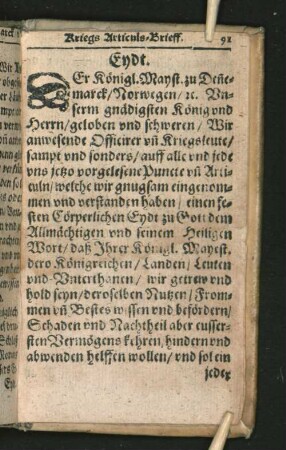 Kriegs Articuls-Brieff. 91
Eydt.
DEr Königl. Mayst. zu Deñe-
marck/Norwegen/ ꝛc. Vn-
serm gnädigsten König vnd
Herrn/geloben vnd schweren/ Wir
anwesende Officirer vñ Kriegsleute/
sampt vnd sonders/auff alle vnd jede
vns jetzo vorgelesene Puncte vñ Arti-
culn/welche wir gnugsam eingenom-
men vnd verstanden haben / einen fe-
sten Cörperlichen Eydt zu Gott dem
Allmächtigen vnd seinem Heiligen
Wort/daß Ihrer Königl. Mayest.
dero Königreichen/ Landen/ Leuten
vnd Vnterthanen/ wir getrew vnd
hold seyn/deroselben Nutzen/ From-
men vñ Bestes wissen vnd befördern/
Schaden vnd Nachtheil aber eusser-
sten Vermögens kehren/hindern vnd
abwenden helffen wollen/ vnd sol ein
jeder